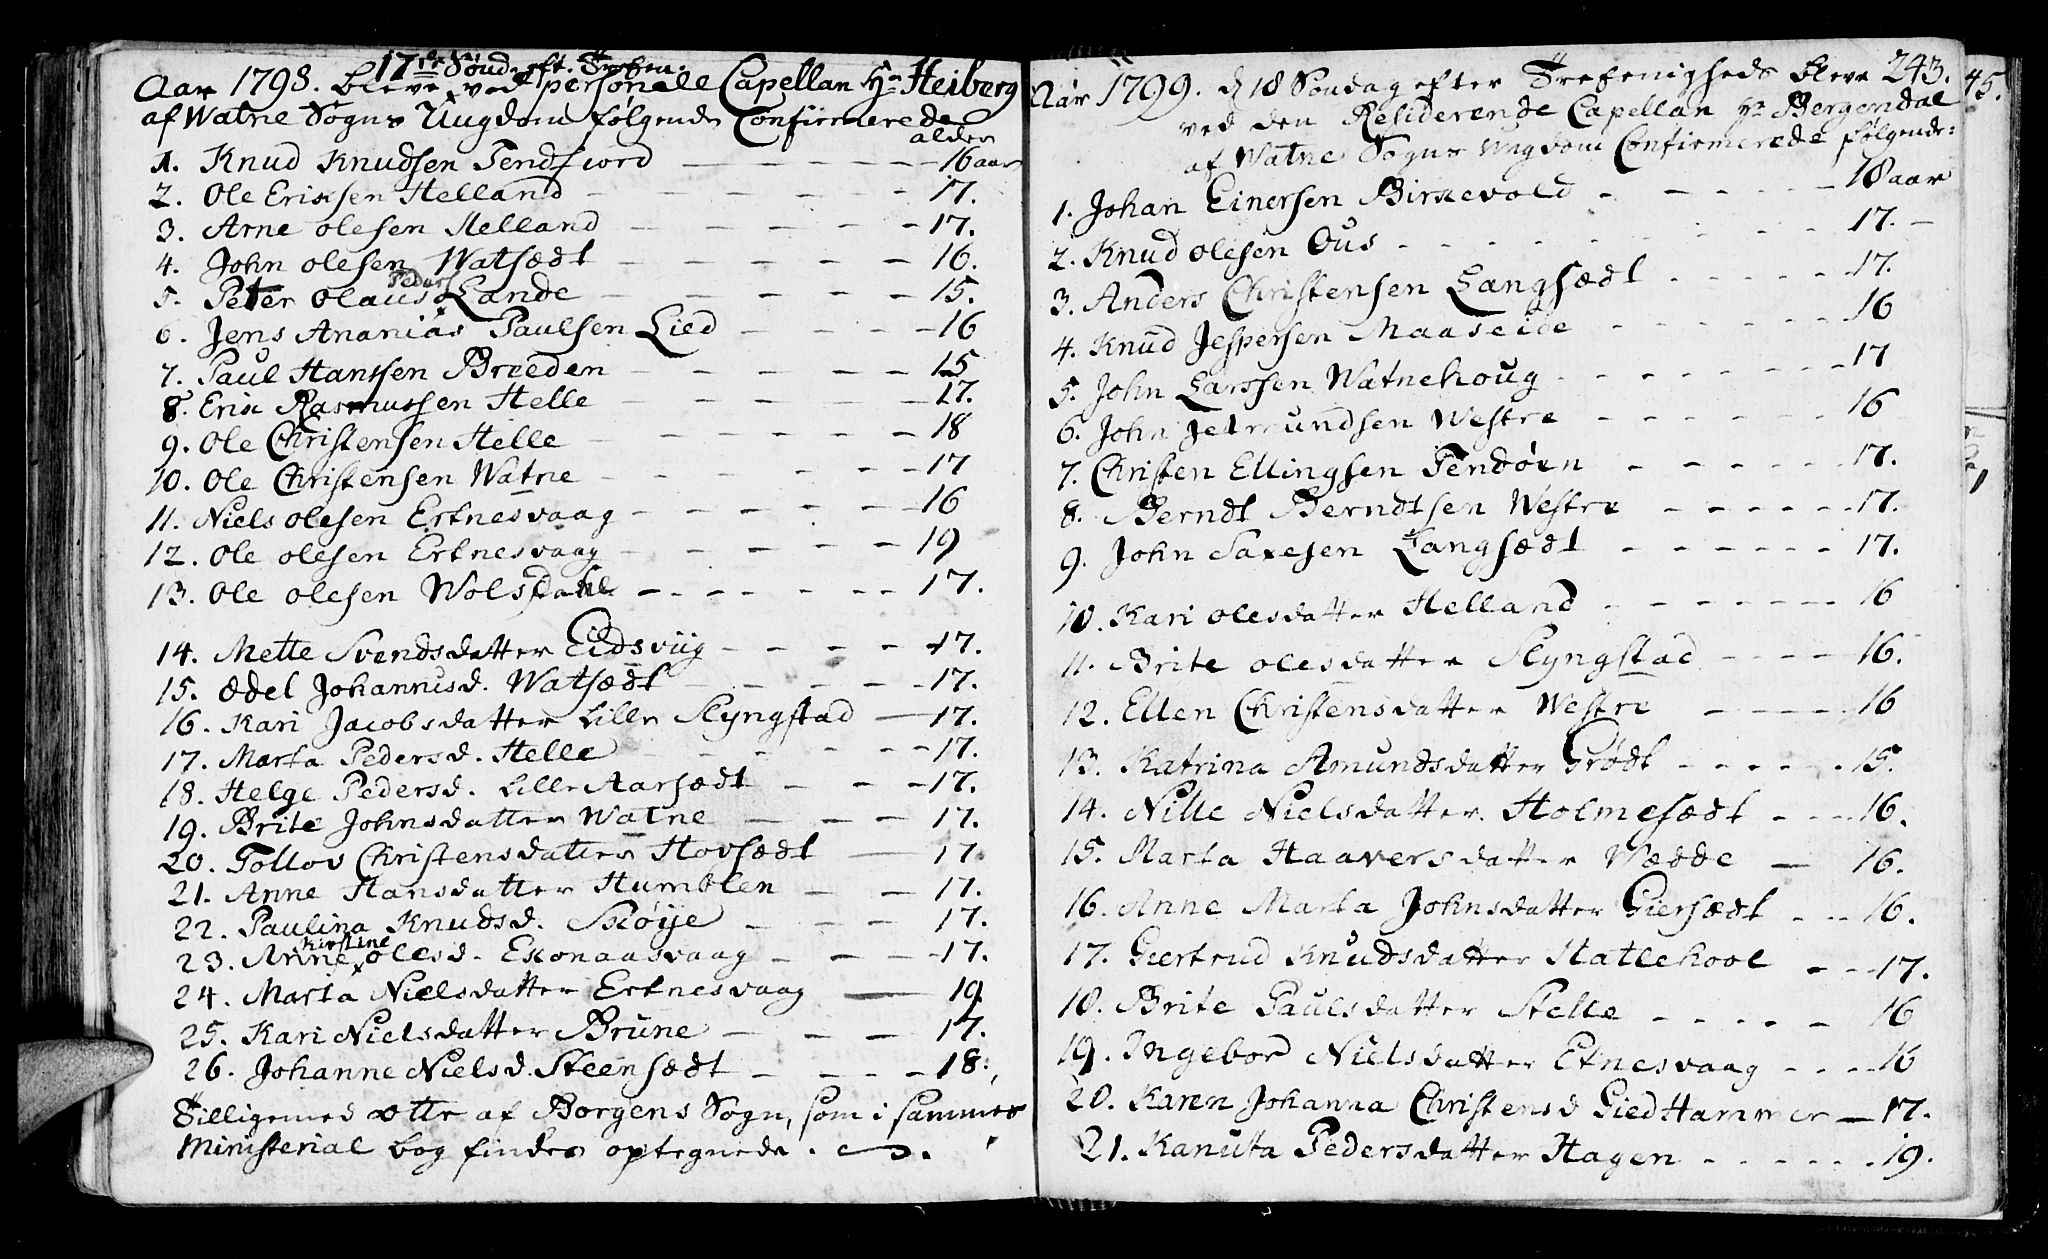 17de Sønd. eft. Trefen.
Aar 1798. bleve ved personele Capellan Hr Heiberg
af Watne Sogns Ungdom følgende Confirmerede
alder
1. Knud Knudsen Tendfiord - - - - - 16 aar
2. Ole Erixsen Helland - - - - - 17.
3. Arne Olesen Helland - - - - - 17.
4. John Olesen Watsædt - - - - - 16.
Peders.
5. Peter Olaus Lande - - - - - 15.
6. Jens Ananias Paulsen Lied - - - - 16
7. Paul Hanssen Breeden - - - - - 15
8. Erix Rasmussen Helle - - - - - 17.
9. Ole Christensen Helle - - - - - 18
10. Ole Christensen Watne - - - - - 17
11. Niels Olesen Ertnesvaag - - - - - 16
12. Ole Olesen Ertnesvaag - - - - - 19
13. Ole Olesen Wolsdahl - - - - - 17.
14. Mette Svendsdatter Eidsviig - - - - 17.
15. Ædel Johannisd. Watsædt - - - - 17.
16. Kari Jacobsdatter Lille Slyngstad - 17.
17. Marta Pedersd. Helle - - - - - 17.
18. Helge Pedersd. Lille Aarsædt - - - 17.
19. Brite Johnsdatter Watne - - - 17.
20. Tollov Christensdatter Hovsædt - 17
21. Anne Hansdatter Humblen - - - 17.
22. Paulina Knudsd. Skøije - - - 17.
Kirstine
23. Anne Olesd. Exonaasvaag - - - 17.
24. Marta Nielsdatter Ertnesvaag - 19
25. Kari Nielsdatter Brune - - - 17.
26. Johanne Nielsd. Steensædt - - - 18.
Tilligemed otte af Borgens Sogn, som i sammes
Ministerial bog findes optegnede.
243.
Aar 1799. d 18 Søndag efter Trefenigheds bleve
ved den Residerende Capellan Hr Bergendal
af Watne Sogns Ungdom Confirmerede følgende:
1. Johan Einersen Birkevold - - - - 18 aar
2. Knud Olesen Ous - - - - - 17.
3. Anders Christensen Langsædt - - - - 17.
4. Knud Jespersen Maaseide - - - - 16
5. John Larssen Watnehoug - - - - - 17
6. John Jetmundsen Westre - - - - - 16
7. Christen Ellingsen Tendøen - - - - 17.
8. Berndt Berndtsen Westre - - - - 17.
9. John Saxesen Langsædt - - - - - 17.
10. Kari Olesdatter Helland - - - - - 16
11. Brite Olesdatter Slyngstad - - - - 16.
12. Ellen Christensdatter Westre - - - - 16
13. Katrina Amundsdatter Grødt - - - - 15.
14. Nille Nielsdatter Holmesædt - - - 16.
15. Marta Haaversdatter Wædde - 16.
16. Anne Marta Johnsdatter Giersædt - - 16.
17. Giertrud Knudsdatter Hatlehoel - - 17.
18. Brite Paulsdatter Helle - - - - 16
19. Ingebor Nielsdatter Etnesvaag - - - 16
20. Karen Johanna Christensd Giedhammer - 17.
21. Kanuta Pedersdatter Hagen - - - - 19.
45.